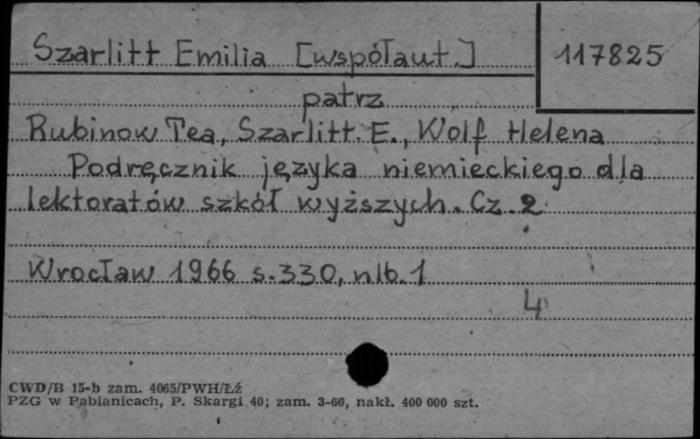 Szarlitt Emilia [współaut.] 117825
patrz
Rubinow Tea, Szarlitt. E., Wolf Helena
Podręcznik języka niemieckiego dla
lektoratów szkół wyższych. Cz. 2
Wrocław 1966 s. 330, nlb. 1
4
CWD/B 15-b zam. 4065/PWH/Łź
PZG w Pabianicach, P. Skargi 40; zam. 3-66, nakł. 400 000 szt.